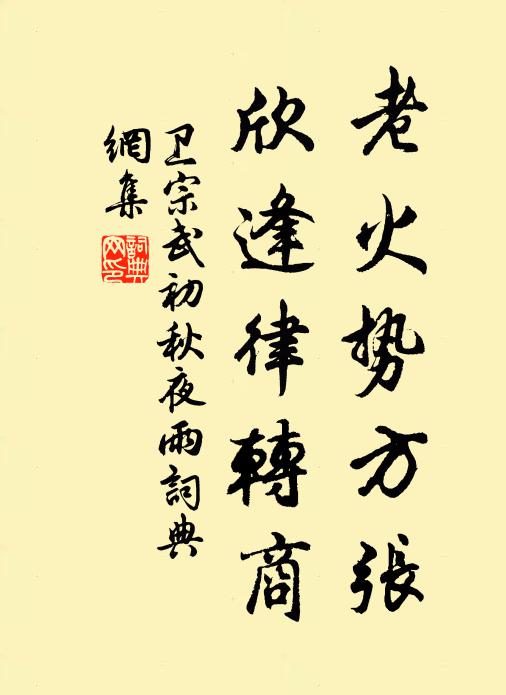 老火势方張
欣逢律轉商
卫宗武初秋夜雨詞典
網集
詞典网印